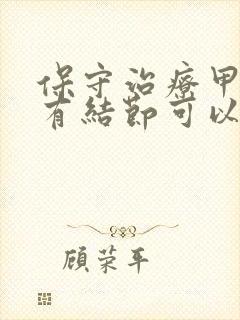 保守治療甲
有結節可以
顾荣平